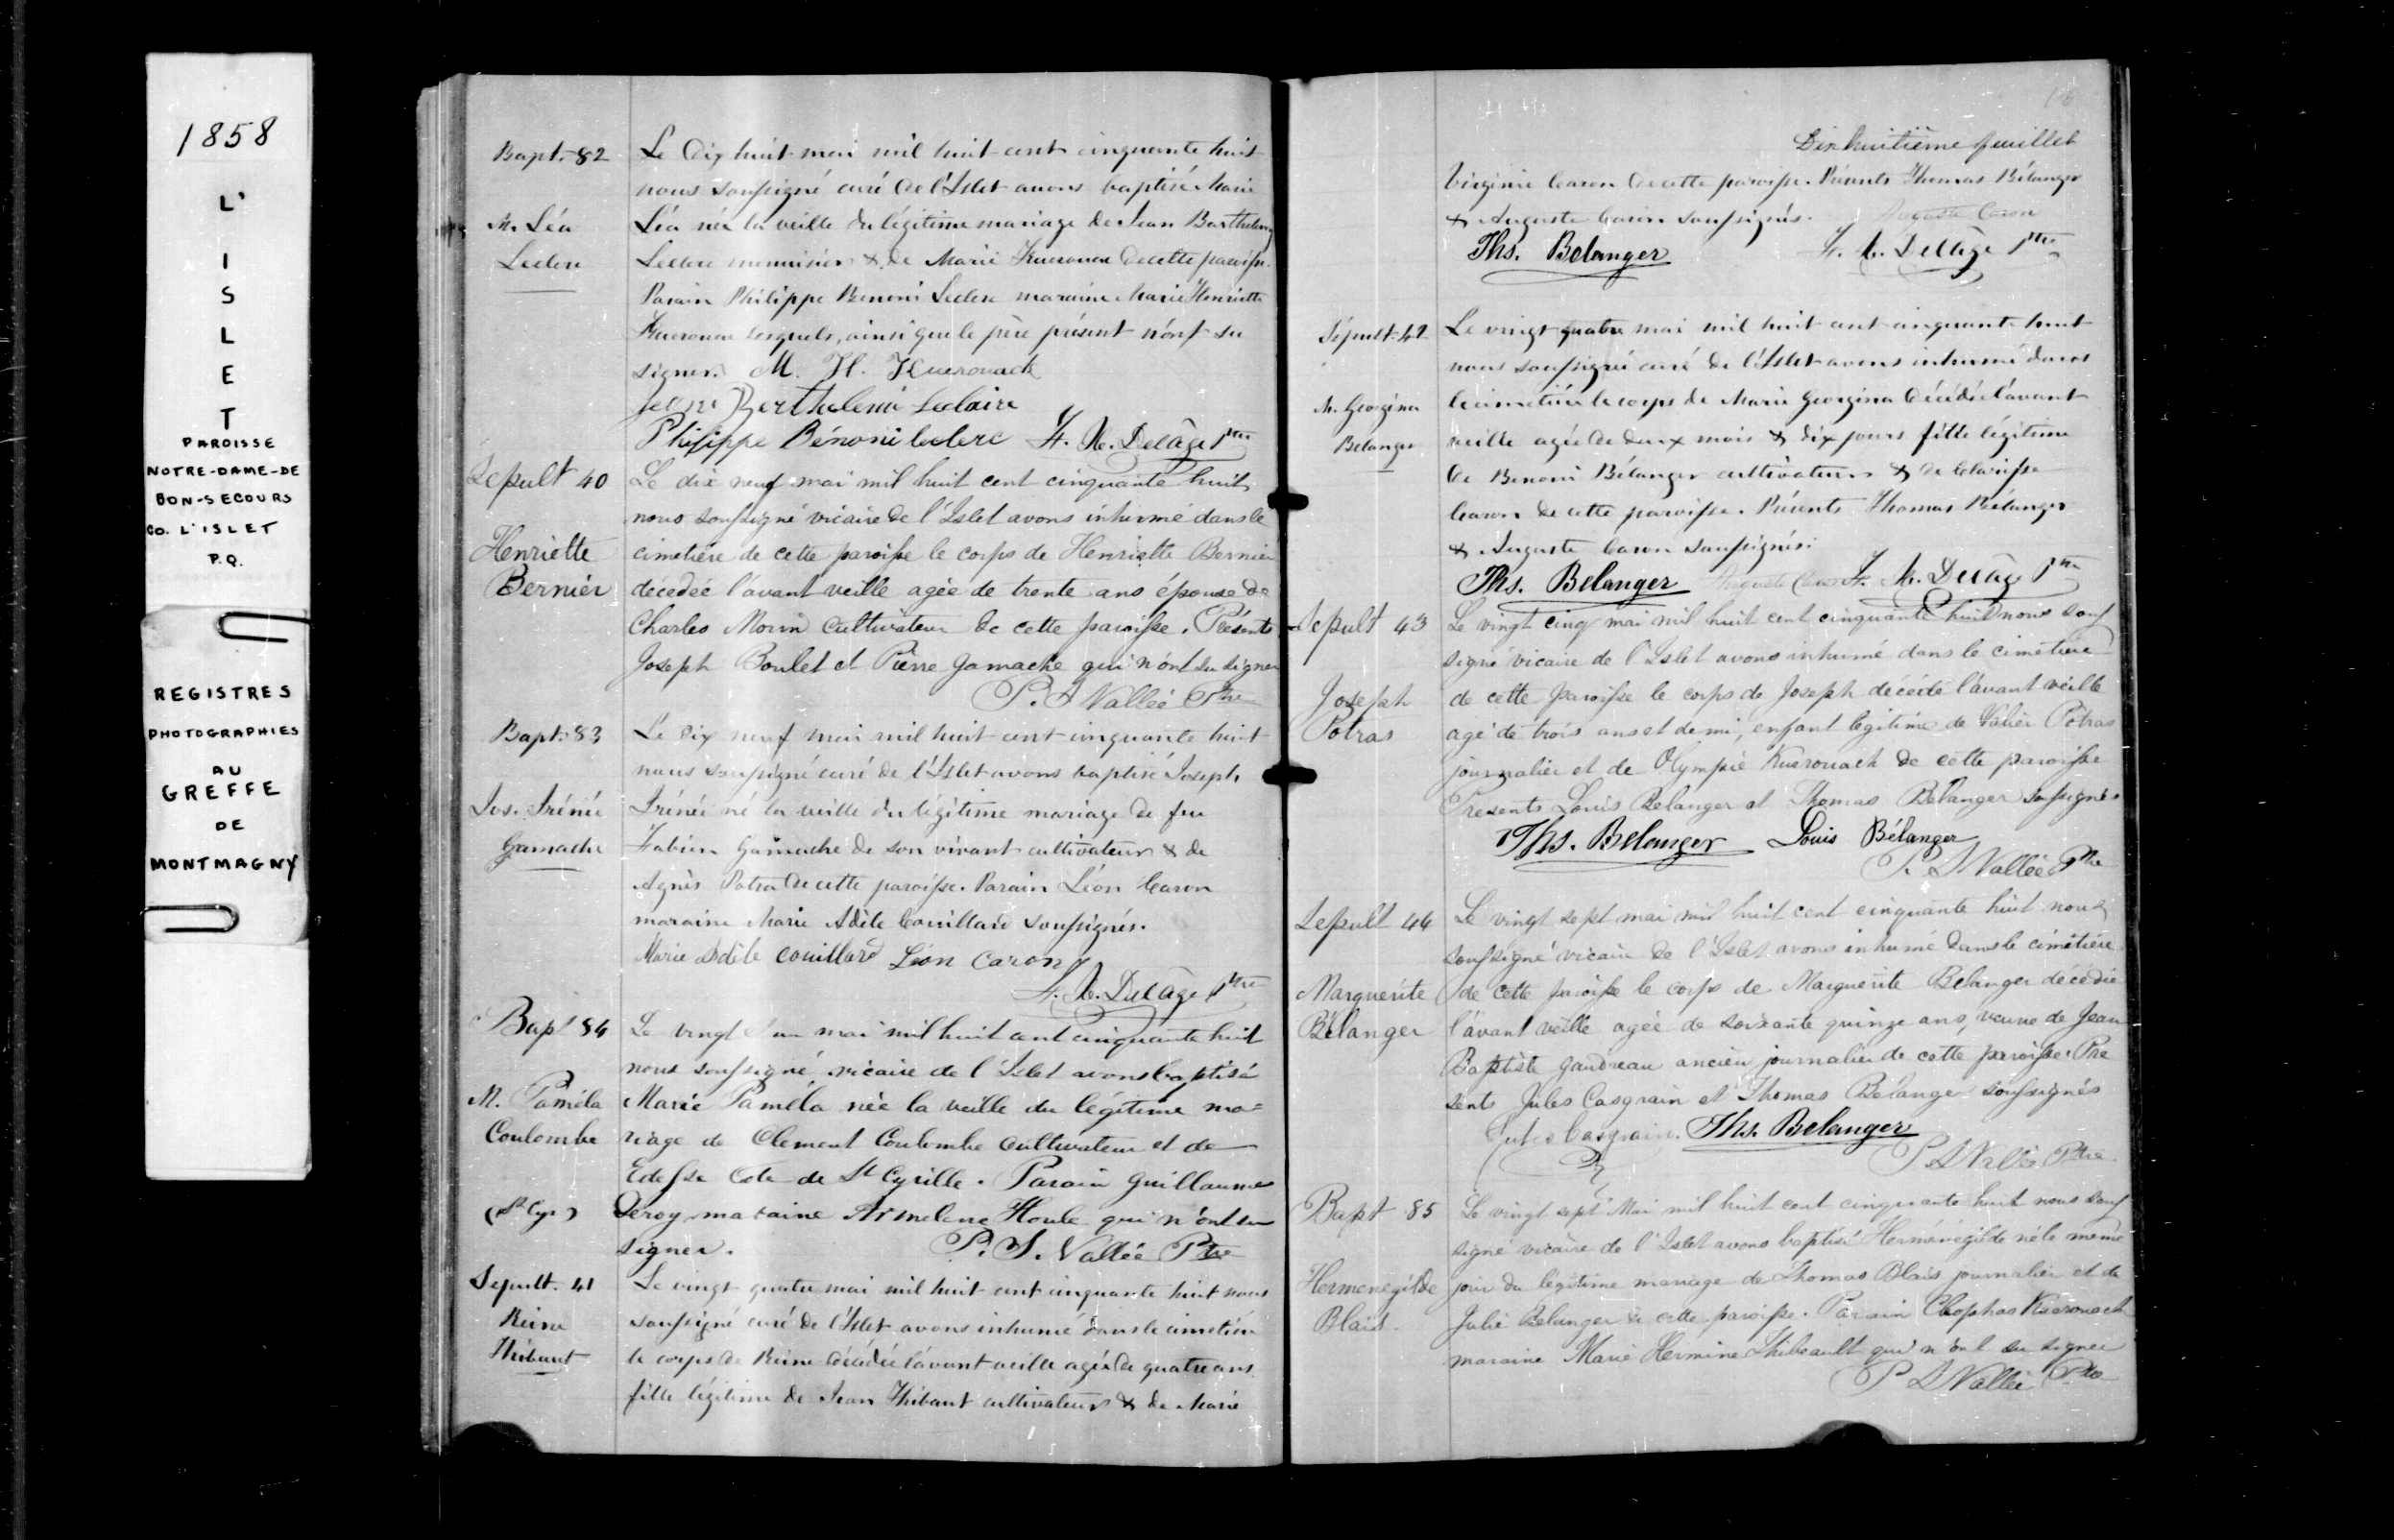 1858
L'
I
S
L
E
T
PAROISSE
NOTRE-DAME-DE
BON-SECOURS
CO. L'ISLET
P.Q.
REGISTRES
PHOTOGRAPHIES
AU
GREFFE
DE
MONTMAGNY
Bapt. 82
M. Léa
Leclerc
Le dix huit mai mil huit cent cinquante huit
nous soussigné curé de l'Islet avons baptisé Marie
Léa née la veille du légitime mariage de Jean Barthelemy
Leclerc menuisier & de Marie Kuerouac de cette paroisse.
Parain Philippe Benoni Leclerc maraine Marie Henriette
Kuerouac lesquels, ainsi que le père présent n'ont su
signer. M. H. Kuerouack
Jean Berthelemi Leclaire
Philippe Bénoni leclerc F. X. Delâge Ptre
Sepult 40
Henriette
Bernier
Le dix neuf mai mil huit cent cinquante huit
nous soussigné vicaire de l'Islet avons inhumé dans le
cimetière de cette paroisse le corps de Henriette Bernier
décédée l'avant veille agée de trente ans épouse de
Charles Morin Cultivateur de cette paroisse. Présents
Joseph Boulet et Pierre Gamache qui n'ont su signer
P. S Vallée Ptre
Bapt. 83
Jos. Irénée
Gamache
Le dix neuf mai mil huit cent cinquante huit
nous soussigné curé de l'Islet avons baptisé Joseph
Irénée né la veille du légitime mariage de feu
Fabien Gamache de son vivant cultivateur & de
Agnès Potra de cette paroisse. Parain Léon Caron
maraine Marie Adèle Couillard soussignés.
Marie Adèle couillard Léon Caron
F. X. Delâge Ptre
Bapt 84
M. Paméla
Coulombe
(St Cyr)
Le vingt et un mai mil huit cent cinquante huit
nous soussigné vicaire de l'Islet avons baptisé
Marie Paméla née la veille du légitime ma=
riage de Clement Coulombe Cultivateur et de
Edesse Cote de St Cyrille. Parain Guillaume
Leroy maraine Armeline Houle qui n'ont su
signer. P. S. Vallée Ptre
Sepult. 41
Reine
Thibaut
Le vingt quatre mai mil huit cent cinquante huit nous
soussigné curé de l'Islet avons inhumé dans le cimetière
le corps de Reine décédée l'avant veille agée de quatre ans
fille légitime de Jean Thibaut cultivateur & de Marie
18
Dix huitième feuillet
Virginie Caron de cette paroisse. Présents Thomas Bélanger
& Auguste Caron soussignés. Auguste Caron
Ths. Belanger F. X. Delâge Ptre
Sépult. 42
M. Georgina
Bélanger
Le vingt quatre mai mil huit cent cinquante huit
nous soussigné curé de l'Islet avons inhumé dans
le cimetière le corps de Marie Georgina décédée l'avant
veille agée de deux mois & dix jours fille légitime
de Benoni Bélanger cultivateur & de Clarisse
Caron de cette paroisse. Présents Thomas Bélanger
& Auguste Caron soussignés.
Ths. Belanger Auguste Caron F. X. Delâge Ptre
Sepult 43
Joseph
Potras
Le vingt cinq mai mil huit cent cinquante huit nous sous
signé vicaire de l'Islet avons inhumé dans le cimetière
de cette paroisse le corps de Joseph décédé l'avant veille
agé de trois ans et demi, enfant legitime de Valier Potras
journalier et de Olympie Kuerouack de cette paroisse
Presents Louis Belanger et Thomas Belanger soussignés
Ths. Belanger Louis Bélanger
P. S Vallée Ptre
Sepult 44
Marguerite
Bélanger
Le vingt sept mai mil huit cent cinquante huit nous
soussigné vicaire de l'Islet avons inhumé dans le cimetière
de cette paroisse le corps de Marguerite Belanger décédée
l'avant veille agée de soixante quinze ans, veuve de Jean
Baptiste Gaudreau ancien journalier de cette paroisse. Pré
sents Jules Casgrain et Thomas Bélanger soussignés
Jules Casgrain. Ths. Belanger
P. S Vallée Ptre
Bapt 85
Hermenegilde
Blais
Le vingt sept Mai mil huit cent cinquante huit nous sous
signé vicaire de l'Islet avons baptisé Herménégilde né le même
jour du légitime mariage de Thomas Blais journalier et de
Julie Belanger de cette paroisse. Parain Cléophas Kuerouack
maraine Marie Hermine Thibeault qui n'ont su signer
P S Vallée Ptre